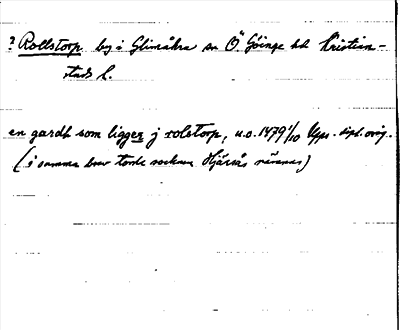 ? Rollstorp by i Glimåkra sn Ö Göinge hd Kristian-
stads l.
en gardh som ligger j rolstorp, u.o. 1479 1/10 Upps. dipl. orig.
(i samma brev torde socknen Hjärsås nämnas)